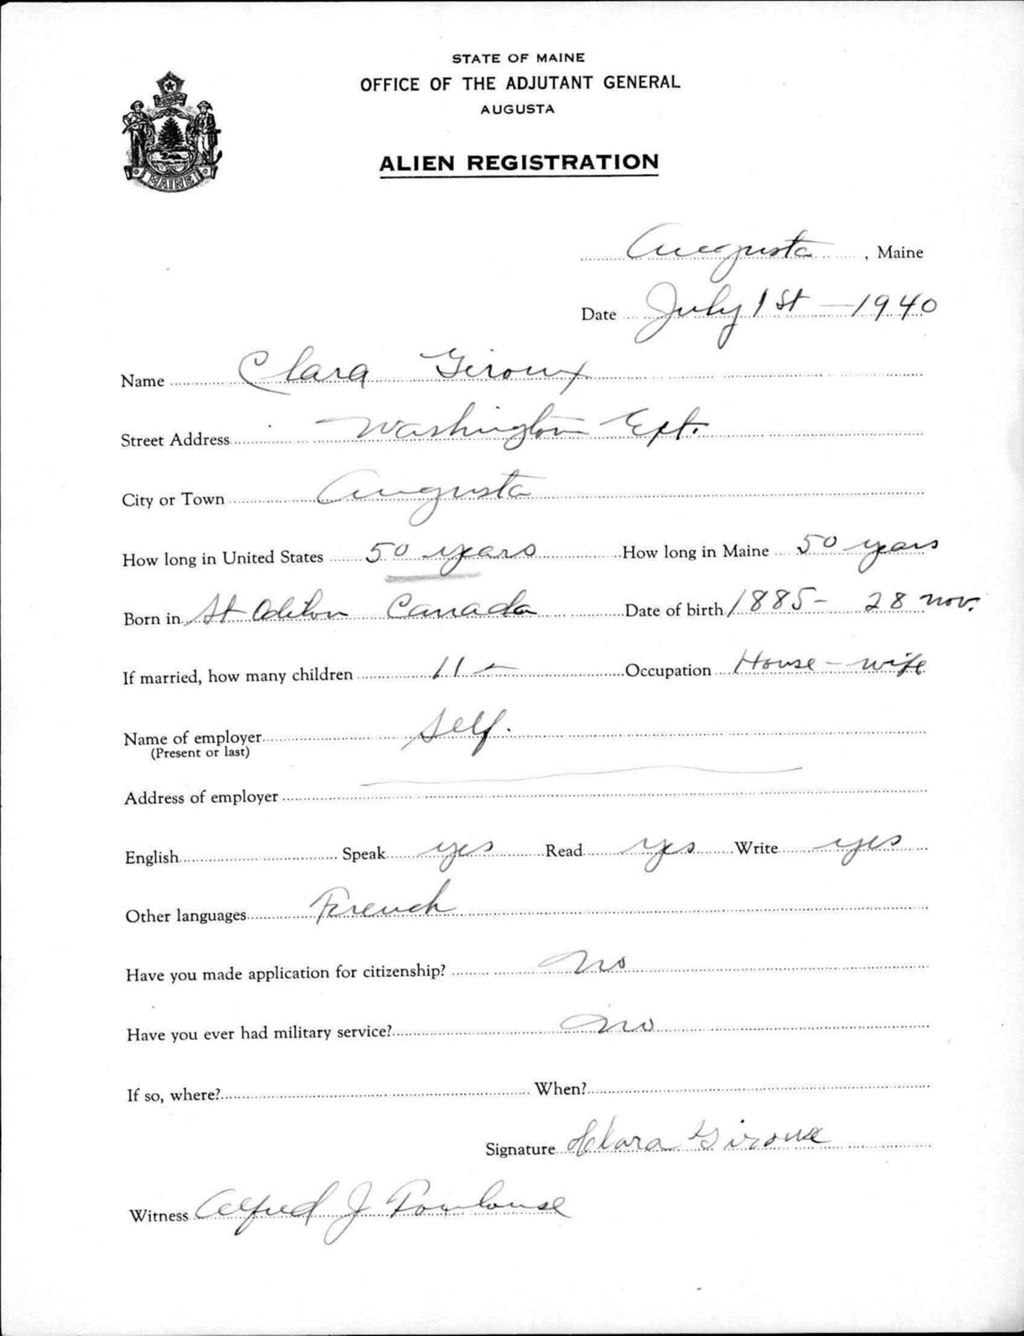 STATE OF MAINE
OFFICE OF THE ADJUTANT GENERAL
AUGUSTA
ALIEN REGISTRATION
MAINE
Augusta, Maine
Date July 1 St - 1940
Name Clara Giroux
Street Address Washington Ext.
City or Town Augusta
How long in United States 50 years How long in Maine 50 years
Born in St Odilon Canada Date of birth 1885 - 28 nov.
If married, how many children 11 - Occupation House-wife
Name of employer Self.
(Present or last)
Address of employer
English Speak yes Read yes Write yes
Other languages French
Have you made application for citizenship? no
Have you ever had military service? no
If so, where? When?
Signature Clara Giroux
Witness Alfred J Poulouse